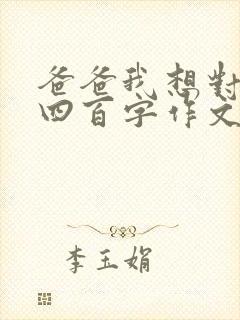 爸爸我想對
四百字作文
李玉娟